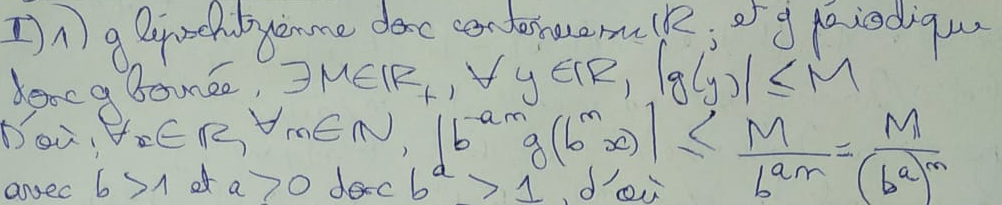 I) 1) g lipschitzienne donc continue sur ℝ, et g périodique
donc g bornée, ∃M∈ℝ₊, ∀y∈ℝ, |g(y)| ≤ M
D'où, ∀x∈ℝ, ∀n∈ℕ, |b^{-an} g(b^n x)| ≤ M/b^{an} = M/(b^a)^n
avec b > 1 et a > 0 donc b^a > 1, d'où